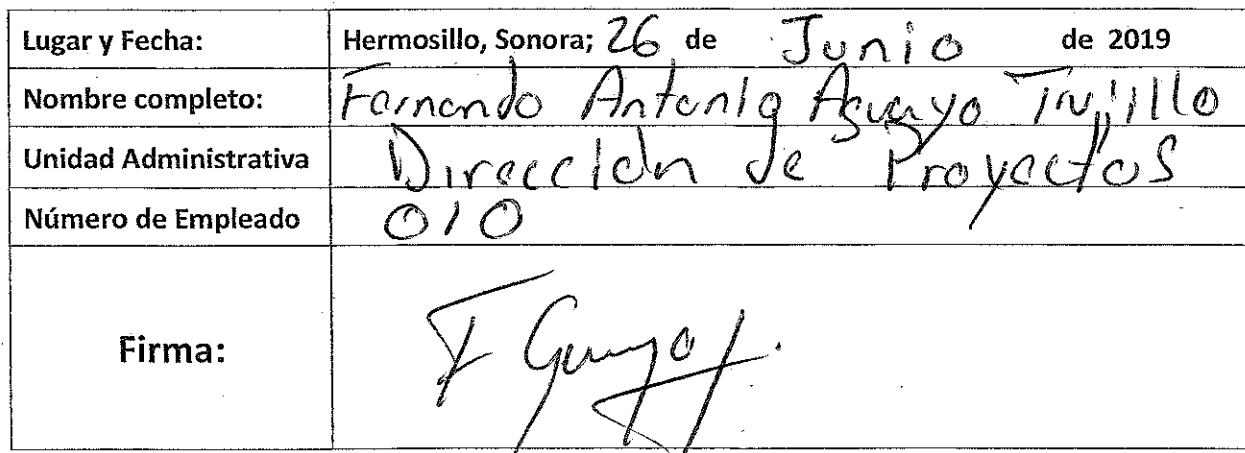 Lugar y Fecha: Hermosillo, Sonora; 26 de Junio de 2019
Nombre completo: Fernando Antonio Aguayo Trujillo
Unidad Administrativa Dirección de Proyectos
Número de Empleado 010
Firma: